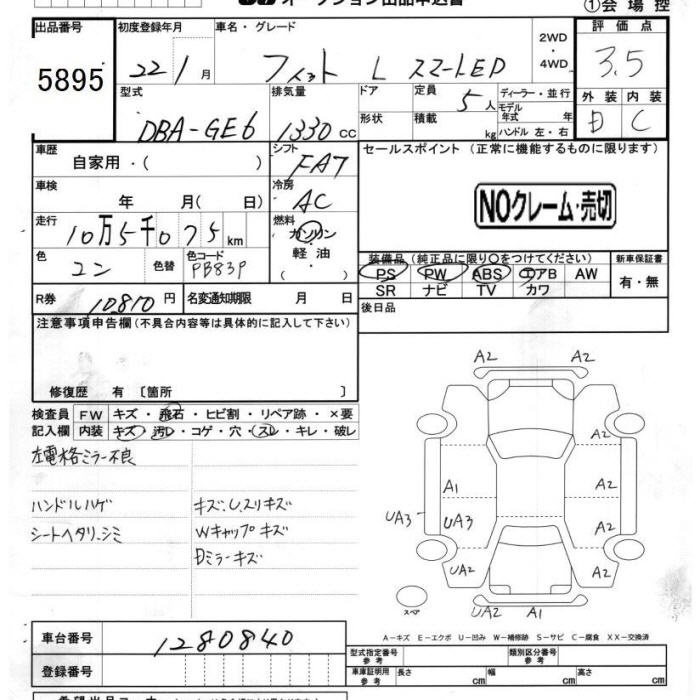 オークション出品申込書
①会場控
出品番号 初度登録年月 車名・グレード 2WD ・ 4WD 評価点
5895 22 1月 フィット L スマートED 3.5
型式 排気量 ドア 定員 5人 ディーラー・並行 外装 内装
モデル年式 年
DBA-GE6 1330cc 形状 積載 kg ハンドル 左・右 D C
車歴 シフト セールスポイント (正常に機能するものに限ります)
自家用・( ) FAT
車検 冷房
年 月( 日) AC NOクレーム・売切
走行 燃料
10万5千075km ガソリン・軽油・( )
色 色替 色コード 装備品 (純正品に限り○をつけてください) 新車保証書
コン PB83P PS PW ABS エアB AW 有・無
SR ナビ TV カワ
R券 10,810円 名変通知期限 月 日 後日品
注意事項申告欄(不具合内容等は具体的に記入して下さい)
修復歴 有 〔箇所 〕
検査員 FW キズ・飛石・ヒビ割・リペア跡・×要
記入欄 内装 キズ・汚レ・コゲ・穴・スレ・キレ・破レ
左電格ミラー不良
ハンドルハゲ キズ、U、スリキズ
シートヘタリ、シミ Wキャップキズ
Dミラーキズ
A2 A2
A2 A2
A1 A2
UA3 UA3 A2
UA2 A2
スペア UA2 A1
A-キズ E-エクボ U-凹み W-補修跡 S-サビ C-腐食 XX-交換済
車台番号 1280840
型式指定番号 参考 類別区分番号 参考
登録番号 車庫証明用 参考 長さ cm 幅 cm 高さ cm